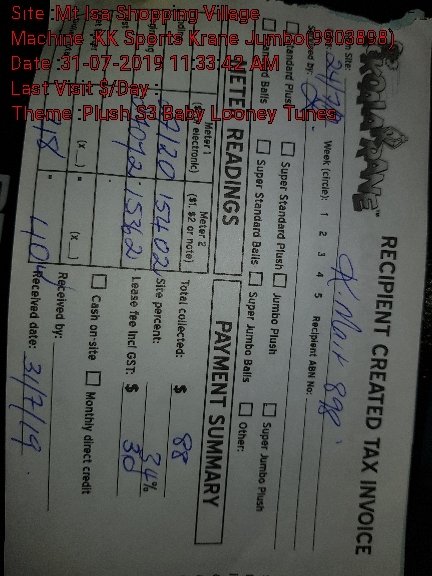 Site :Mt Isa Shopping Village
Machine :KK Sports Krane Jumbo(9903898)
Date :31-07-2019 11:33:42 AM
Last Visit $/Day :
Theme :Plush S3 Baby Looney Tunes
KOALA KRANE™
RECIPIENT CREATED TAX INVOICE
Site: K.Mart 898
Week (circle): 1 2 3 4 5 Recipient ABN No:
Standard Plush Super Standard Plush Jumbo Plush Super Jumbo Plush
Standard Balls Super Standard Balls Super Jumbo Balls Other:
METER READINGS
PAYMENT SUMMARY
Meter 1
electronic)
Meter 2
($1, $2 or note)
15402
15362
(x )
(x )
= 48
= 40
Total collected: $ 88
Site percent: 34%
Lease fee incl GST: $ 30
Cash on-site Monthly direct credit
Received by:
Received date: 31/7/19